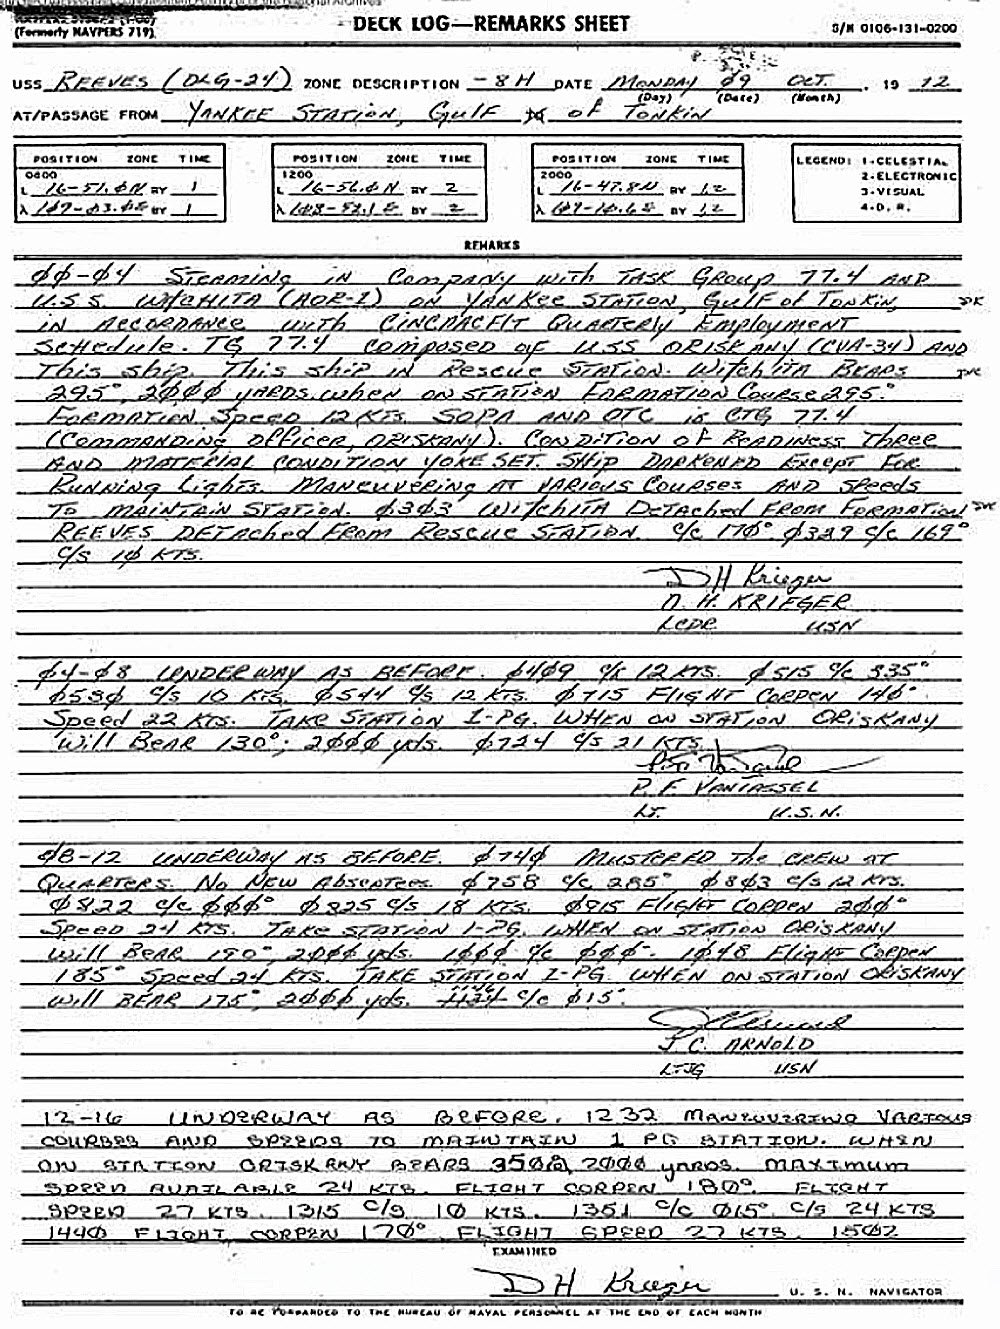 (Formerly NAVPERS 719)
DECK LOG—REMARKS SHEET
S/N 0106-131-0200
USS REEVES (DLG-24) ZONE DESCRIPTION -8H DATE MONDAY Ø9 OCT. 19 72
(Day) (Date) (Month)
AT/PASSAGE FROM YANKEE STATION, GULF of TONKIN
POSITION ZONE TIME
0800
L 16-51.ØN BY 1
λ 1Ø7-Ø3.ØE BY 1
POSITION ZONE TIME
1200
L 16-56.ØN BY 2
λ BY 2
POSITION ZONE TIME
2000
L 16-47.8N BY 1,2
λ 1Ø7-1Ø.6E BY 1,2
LEGEND: 1-CELESTIAL
2-ELECTRONIC
3-VISUAL
4-D. R.
REMARKS
ØØ-Ø4 STEAMING IN COMPANY WITH TASK GROUP 77.4 AND
U.S.S. WICHITA (AOR-1) ON YANKEE STATION, GULF of TONKIN,
IN ACCORDANCE WITH CINCPACFLT QUARTERLY EMPLOYMENT
SCHEDULE. TG 77.4 COMPOSED OF USS ORISKANY (CVA-34) AND
THIS SHIP. THIS SHIP IN RESCUE STATION. WITCHITA BEARS
295°, 2ØØØ YARDS, WHEN ON STATION FORMATION COURSE 295°.
FORMATION SPEED 12 KTS. SOPA AND OTC is CTG 77.4
(COMMANDING OFFICER, ORISKANY). CONDITION OF READINESS THREE
AND MATERIAL CONDITION YOKE SET. SHIP DARKENED EXCEPT FOR
RUNNING LIGHTS. MANEUVERING AT VARIOUS COURSES AND SPEEDS
TO MAINTAIN STATION. Ø3Ø3 WITCHITA DETACHED FROM FORMATION
REEVES DETACHED FROM RESCUE STATION. C/C 17Ø° Ø329 C/C 169°
C/S 1Ø KTS.
D H Krieger
D. H. KRIEGER
LCDR USN
Ø4-Ø8 UNDERWAY AS BEFORE. Ø4Ø9 12 KTS. Ø515 C/C 335°
Ø53Ø C/S 10 KTS. Ø544 C/S 12 KTS. Ø715 FLIGHT CORPEN 14Ø°
SPEED 22 KTS. TAKE STATION 1-PG. WHEN ON STATION ORISKANY
WILL BEAR 130°; 2ØØØ yds. Ø724 C/S 21 KTS.
P. F. VANTASSEL
LT. U.S.N.
Ø8-12 UNDERWAY AS BEFORE. Ø74Ø MUSTERED THE CREW AT
QUARTERS. NO NEW ABSENTEES. Ø758 C/C 285° Ø8Ø3 C/S 12 KTS.
Ø822 C/C ØØØ° Ø825 C/S 18 KTS. Ø915 FLIGHT CORPEN 2ØØ°
SPEED 24 KTS. TAKE STATION 1-PG. WHEN ON STATION ORISKANY
WILL BEAR 190°, 2ØØØ yds. 1ØØØ C/C ØØØ°. 1Ø48 FLIGHT CORPEN
185° SPEED 24 KTS. TAKE STATION 1-PG. WHEN ON STATION ORISKANY
WILL BEAR 175°, 2ØØØ yds. C/C Ø15°.
J. C. ARNOLD
LTJG USN
12-16 UNDERWAY AS BEFORE. 1232 MANEUVERING VARIOUS
COURSES AND SPEEDS TO MAINTAIN 1 PG STATION. WHEN
ON STATION ORISKANY BEARS 2ØØØ yards. MAXIMUM
SPEED AVAILABLE 24 KTS. FLIGHT CORPEN 18Ø°. FLIGHT
SPEED 27 KTS. 1315 C/S 1Ø KTS. 1351 C/C Ø15° C/S 24 KTS
144Ø FLIGHT CORPEN 17Ø° FLIGHT SPEED 27 KTS. 15Ø2
EXAMINED
D H Krieger U. S. N. NAVIGATOR
TO BE FORWARDED TO THE BUREAU OF NAVAL PERSONNEL AT THE END OF EACH MONTH